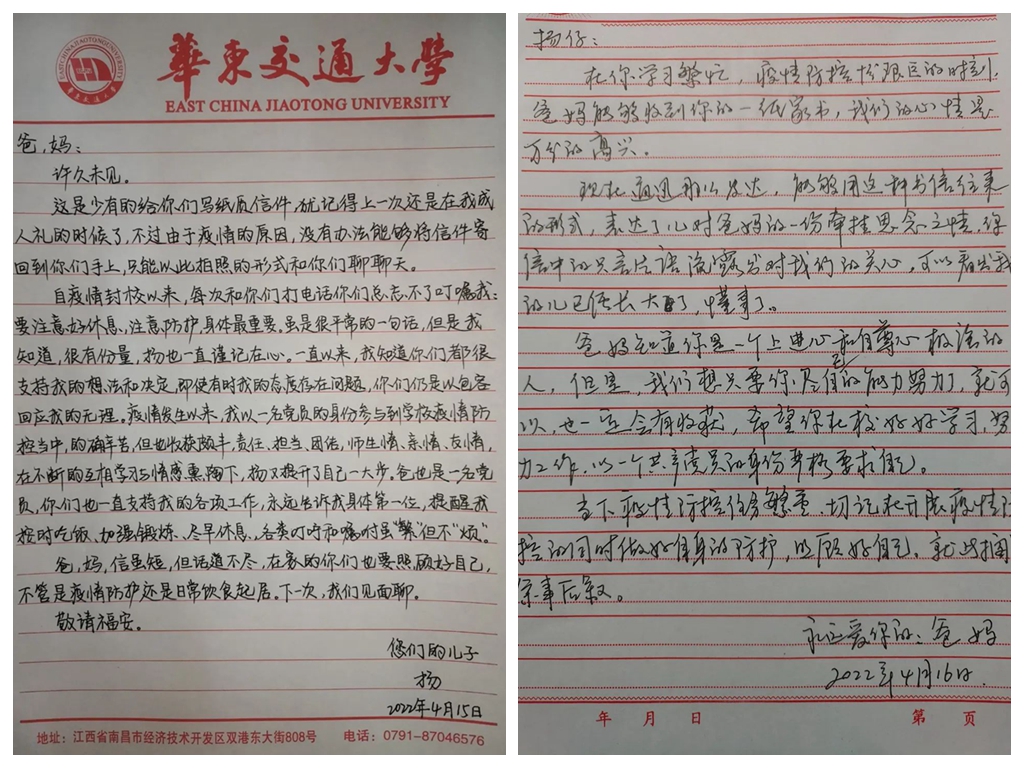 華東交通大學
EAST CHINA JIAOTONG UNIVERSITY
爸,妈:
许久未见。
这是少有的给你们写纸质信件,犹记得上一次还是在我成
人礼的时候了,不过由于疫情的原因,没有办法能够将信件寄
回到你们手上,只能以此拍照的形式和你们聊聊天。
自疫情封校以来,每次和你们打电话你们总忘不了叮嘱我:
要注意好休息,注意防护,身体最重要。虽是很平常的一句话,但是我
知道,很有份量,扬也一直谨记在心。一直以来,我知道你们都很
支持我的想法和决定,即使有时我的态度存在问题,你们仍是以包容
回应我的无理。疫情发生以来,我以一名党员的身份参与到学校疫情防
控当中,的确辛苦,但也收获颇丰,责任、担当、团结,师生情、亲情、友情,
在不断的互相学习与情感熏陶下,扬又提升了自己一大步。爸也是一名党
员,你们也一直支持我的各项工作,永远告诉我身体第一位,提醒我
按时吃饭、加强锻炼、尽早休息,各类叮咛和嘱咐虽“繁”但不“烦”。
爸,妈,信虽短,但话道不尽,在家的你们也要照顾好自己,
不管是疫情防护还是日常饮食起居。下一次,我们见面聊。
敬请福安。
您们的儿子
扬
2022年4月15日
地址:江西省南昌市经济技术开发区双港东大街808号 电话:0791-87046576
扬仔:
在你学习繁忙,疫情防控份艰巨的时刻,
爸妈能够收到你的一纸家书,我们的心情是
万分的高兴。
现在通迅那么发达,能够用这种书信往来
的形式,表达了儿对爸妈的一份牵挂思念之情,你
信中的只言片语流露出对我们的关心,可以看出我
的儿已经长大了,懂事了。
爸妈知道你是一个上进心和自尊心极强的
人,但是,我们想只要你尽自己的能力努力了,就可
以,也一定会有收获,希望你在校好好学习,努
力工作,以一个共产党员的身份严格要求自己。
当下疫情防控任务繁重,切记在开展疫情防
控的同时做好自身的防护,照顾好自己,就此搁笔
余事后叙。
永远爱你的:爸妈
2022年4月16日.
年 月 日 第 页